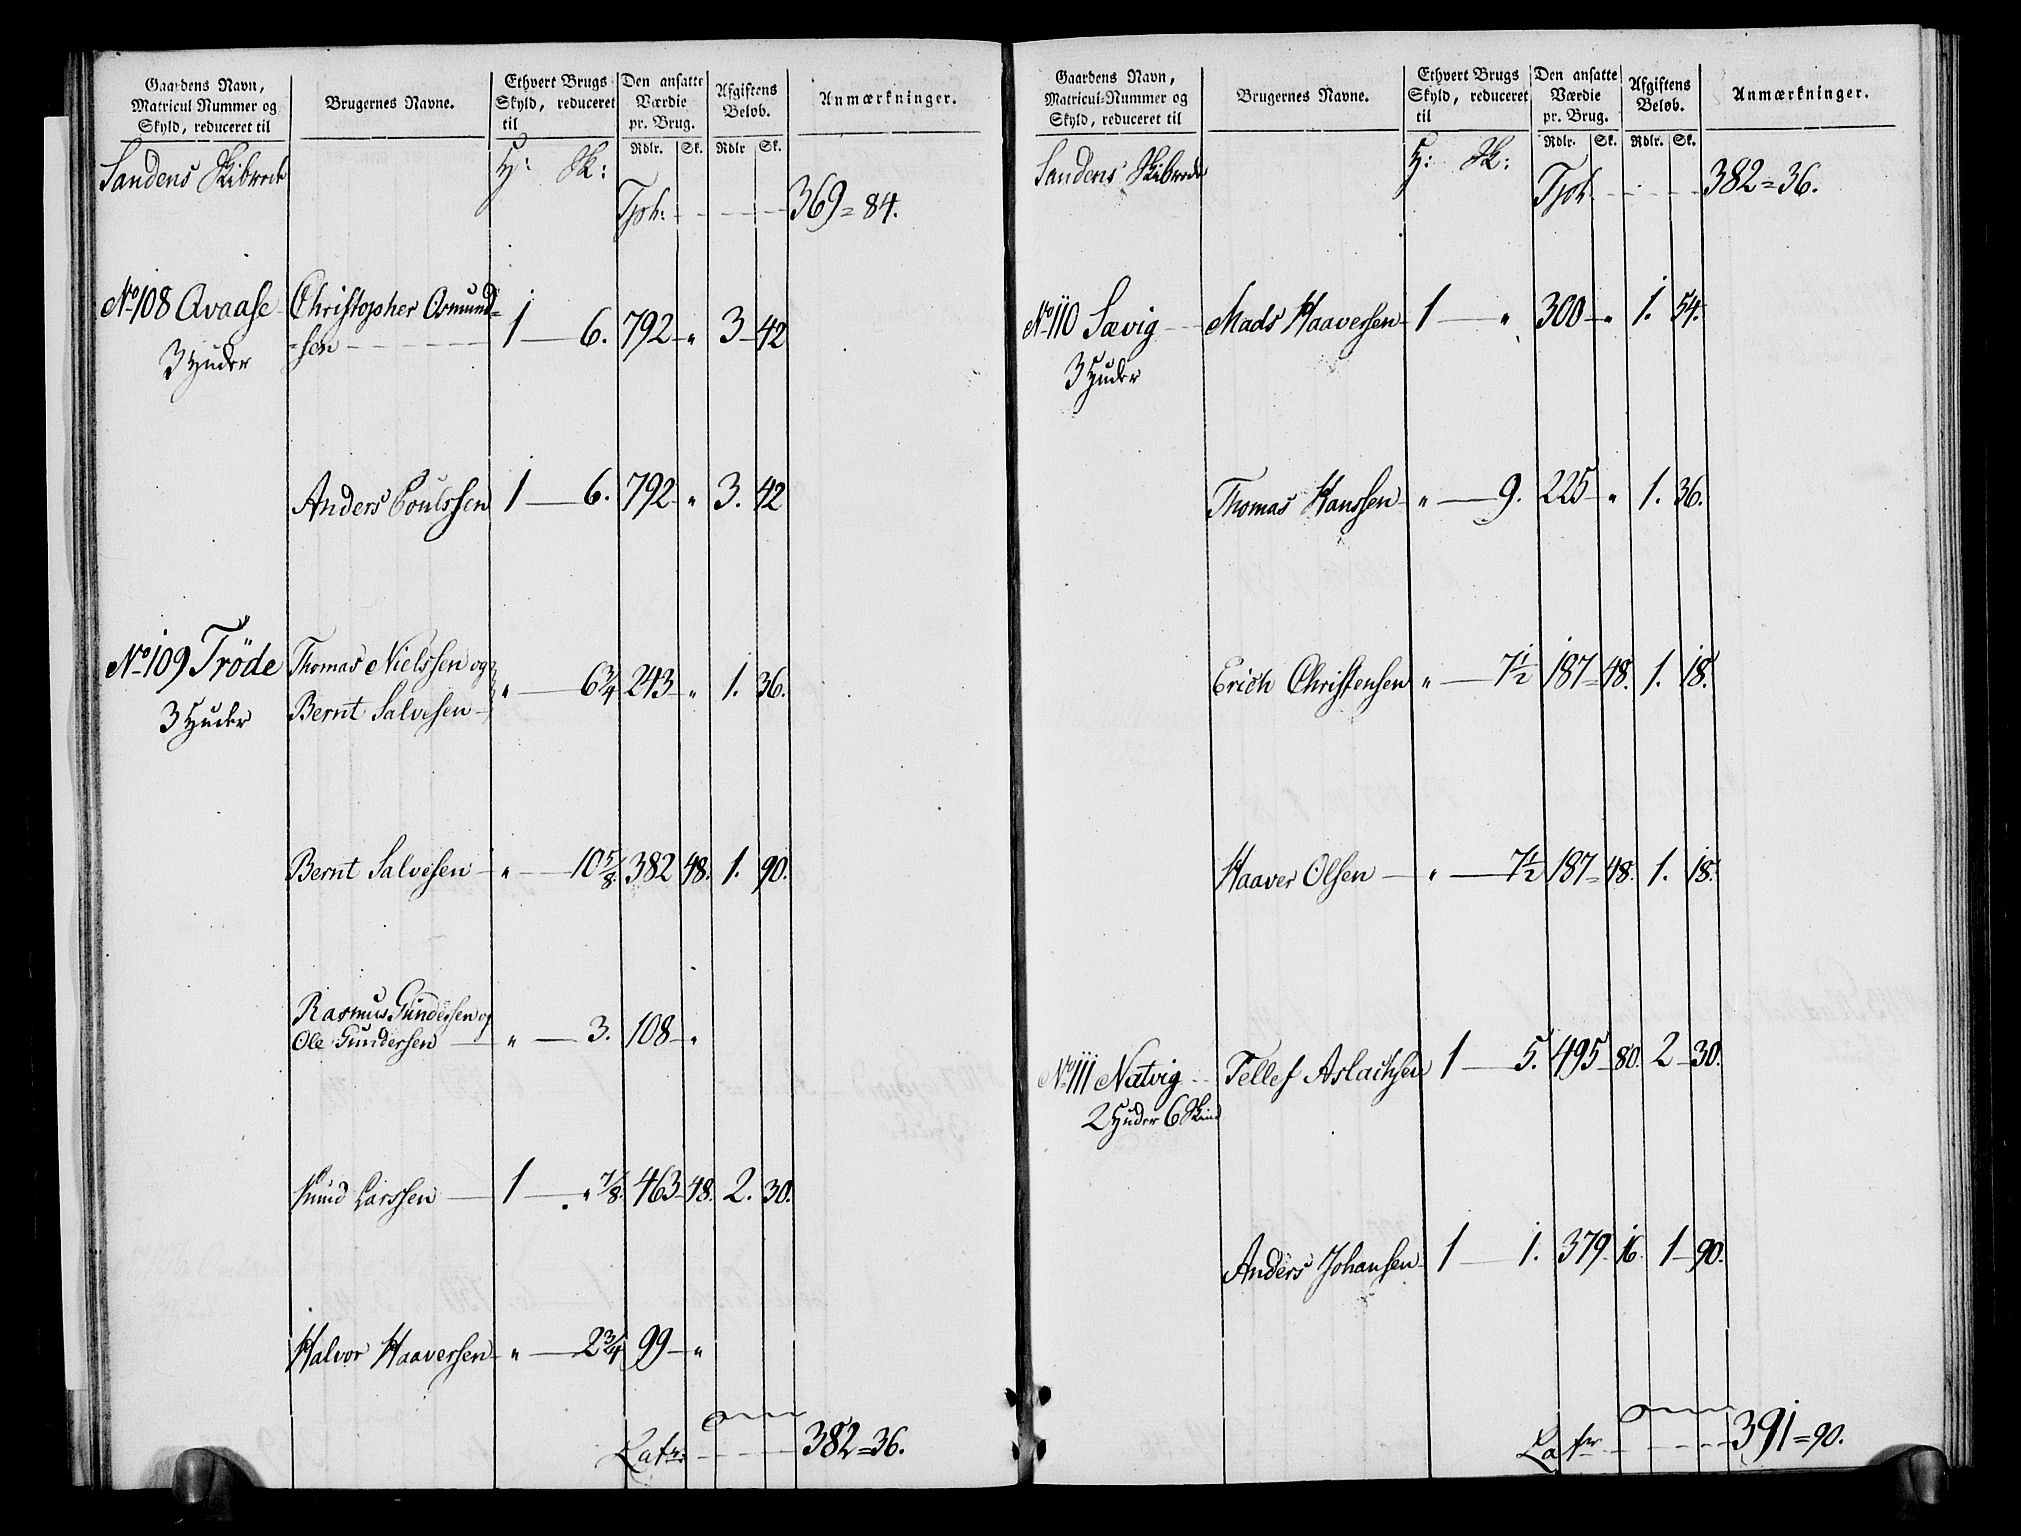 Gaardens Navn,
Matricul Nummer og
Skyld, reduceret til
Brugernes Navne.
Ethvert Brugs
Skyld, reduceret
til
Den ansatte
Værdie
pr. Brug.
Rdlr. Sk.
Afgiftens
Beløb.
Rdlr Sk.
Anmærkninger.
Sandens Skibrede
H: Sk:
Tpt: 369=84.
No 108 Qvaase Christopher Osmund=
=sen 1 6. 792 " 3 42
3 Huder
Anders Poulssen 1 6. 792 " 3. 42
No 109 Tröde Thomas Nielssen og
Bernt Salvesen " 6 3/4 243 " 1. 36.
3 Huder
Bernt Salvesen " 10 5/8 382 48. 1. 90.
Rasmus Gundersen og
Ole Gundersen " 3. 108 "
Knud Larssen 1 " 7/8. 463 48. 2. 30.
Halvor Haaversen " 2 3/4 99 "
Latr: 382=36.
Gaardens Navn,
Matricul-Nummer og
Skyld, reduceret til
Brugernes Navne.
Ethvert Brugs
Skyld, reduceret
til
Den ansatte
Værdie
pr. Brug.
Rdlr. Sk.
Afgiftens
Beløb.
Rdlr. Sk.
Anmærkninger.
Sandens Skibrede
H: Sk:
Tpt 382=36.
No 110 Sævig Mads Haaversen 1 " 300 " 1. 54.
3 Huder
Thomas Hanssen " 9. 225 " 1. 36.
Erich Christensen " 7 1/2 187 48. 1. 18.
Haaver Olsen " 7 1/2 187 48. 1. 18.
No 111 Natvig Tellef Aslachsen 1 5. 495 80. 2 30.
2 Huder 6 Skind
Anders Johansen 1 1. 379. 16. 1 90.
Latr 391=90.